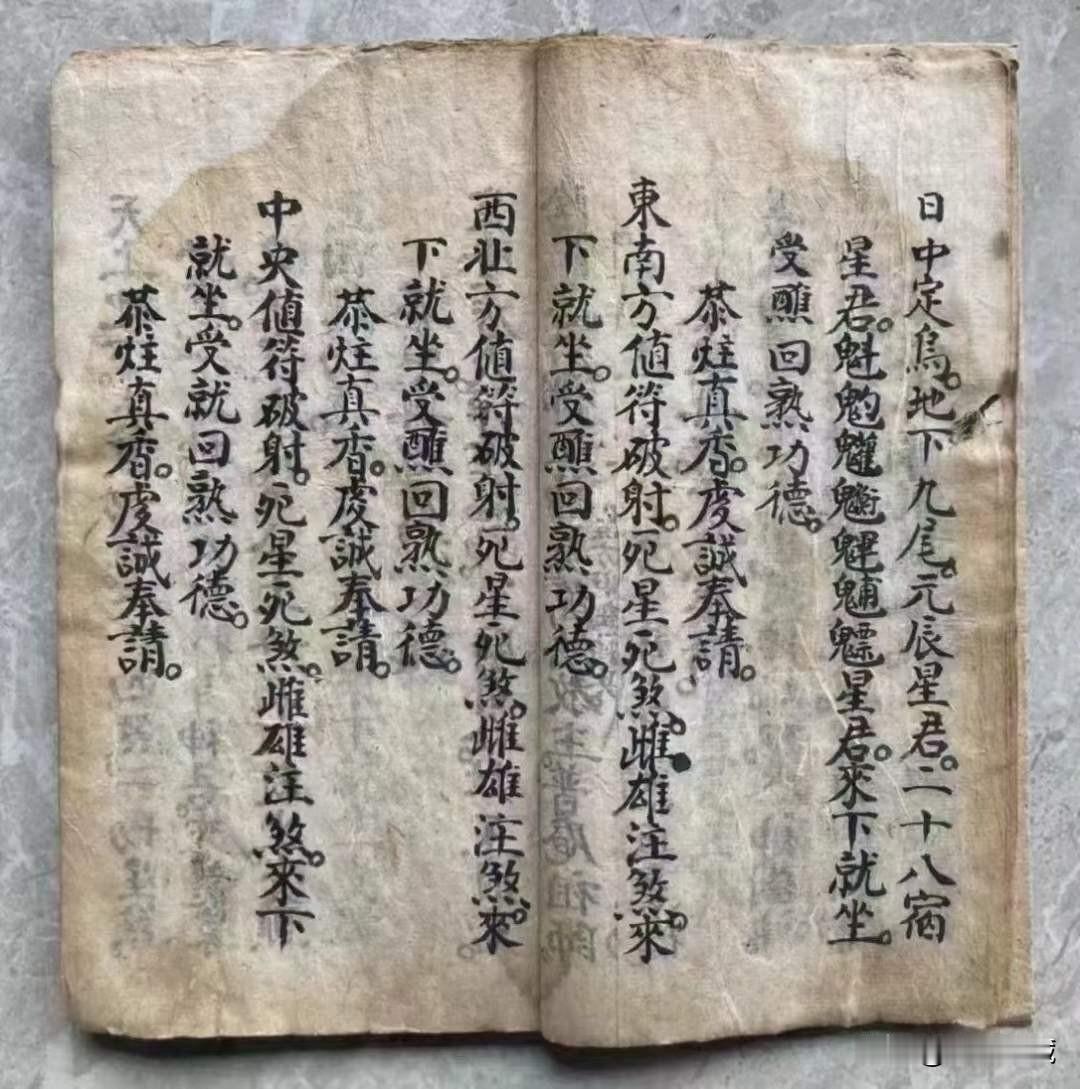 日中定烏。地下九尾。元辰星君。二十八宿
星君。魁𩲃魓魓魒星君。來下就坐。
受醮回熟功德。
恭炷真香。虔誠奉請。
東南方值符破射。死星死煞。雌雄注煞。來
下就坐。受醮回熟功德。
西北方值符破射。死星死煞。雌雄注煞。來
下就坐。受醮回熟功德。
恭炷真香。虔誠奉請。
中央值符破射。死星死煞。雌雄注煞。來下
就坐。受就回熟功德。
恭炷真香。虔誠奉請。